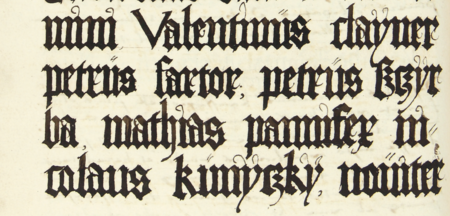 mini Valentinus clayner
petrus sartor, petrus sczyr
ba mathias pannifex ni
colaus kunyczky, nouiter